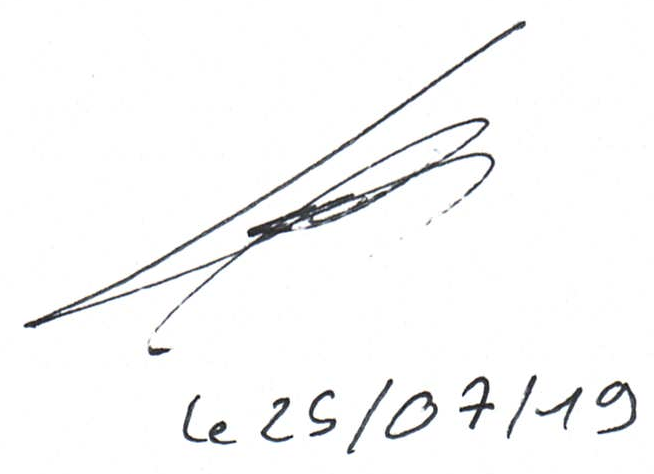 Le 25/07/19